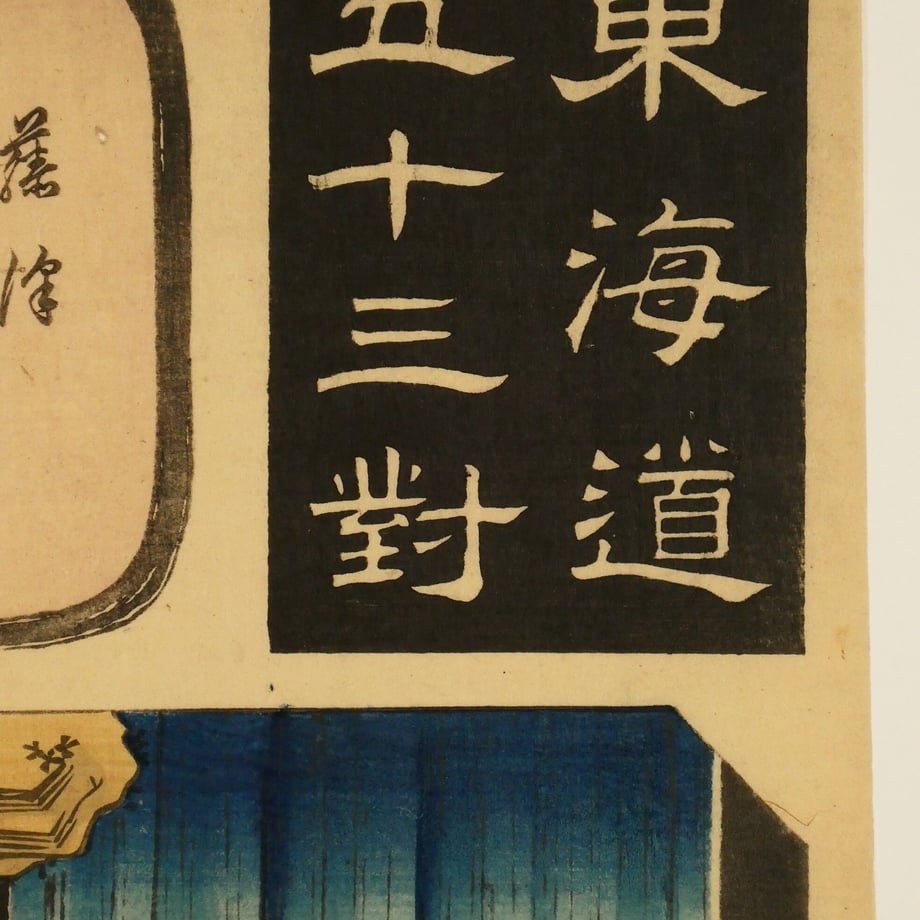 東海道
五十三對
藤澤